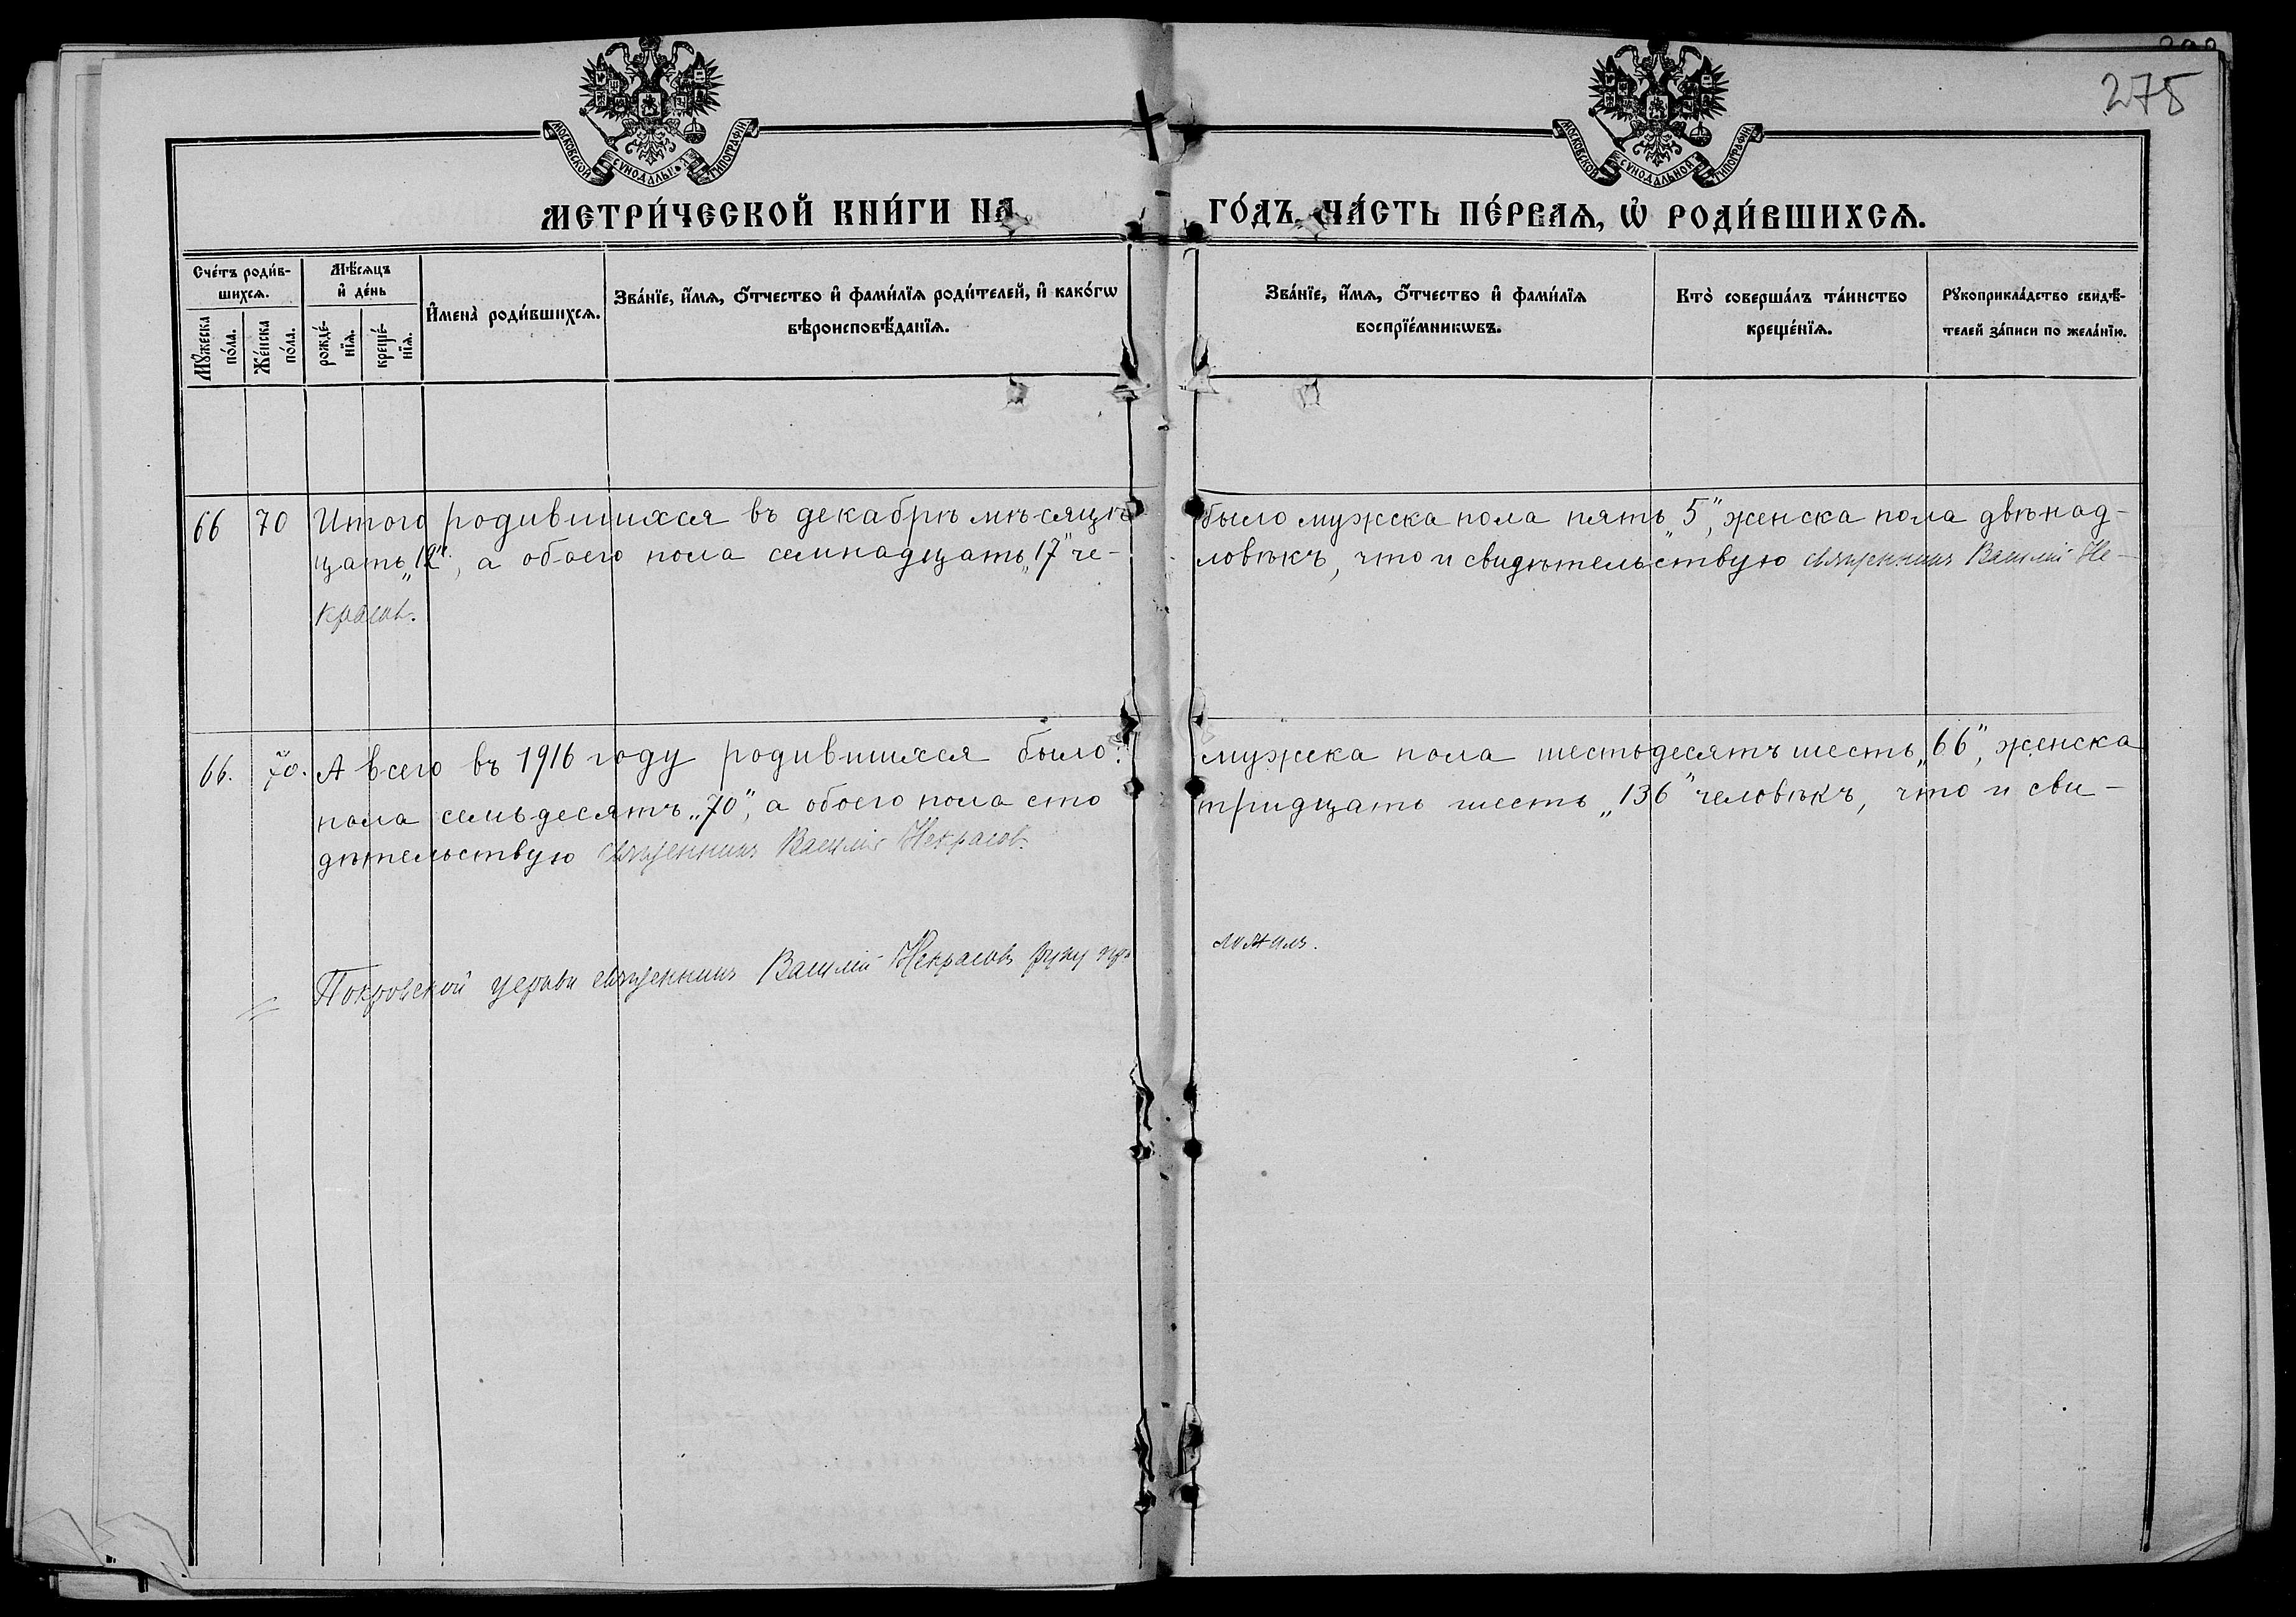 275
МОСКОВСКОЙ СУНОДАЛЬНОЙ ТИПОГРАФІИ
МОСКОВСКОЙ СУНОДАЛЬНОЙ ТИПОГРАФІИ
МЕТРИ́ЧЕСКОЙ КНИ́ГИ НА ГО́ДЪ, ЧА́СТЬ ПЕ́РВАѦ, Ѡ҆ РОДИ́ВШИХСѦ.
Сче́тъ роди́в-
шихсѧ.
Мꙋ́жеска
по́ла.
Же́нска
по́ла.
Мѣ́сѧцъ
и҆ де́нь
рожде́-
нїѧ.
креще́-
нїѧ.
И҆мена̀ роди́вшихсѧ.
Зва́нїе, и҆́мѧ, ѻ҆́тчество и҆ фами́лїѧ роди́телей, и҆ како́гѡ
вѣроисповѣ́данїѧ.
Зва́нїе, и҆́мѧ, ѻ҆́тчество и҆ фами́лїѧ
воспрїе́мникѡвъ.
Кто̀ соверша́лъ та́инство
креще́нїѧ.
Рꙋкоприкла́дство свидѣ́-
телей за́писи по жела́нїю.
66 70 Итого родившихся въ декабрѣ мѣсяцѣ было мужска пола пять „5“, женска пола двѣнад-
цать „12“, а обоего пола семнадцать „17“ че- ловѣкъ, что и свидѣтельствую священникъ Василій Не-
красовъ.
66. 70. А всего въ 1916 году родившихся было: мужска пола шестьдесятъ шесть „66“, женска
пола семьдесятъ „70“, а обоего пола сто тридцать шесть „136“ человѣкъ, что и сви-
дѣтельствую священникъ Василій Некрасовъ.
Покровской церкви священникъ Василій Некрасовъ руку при ложилъ.